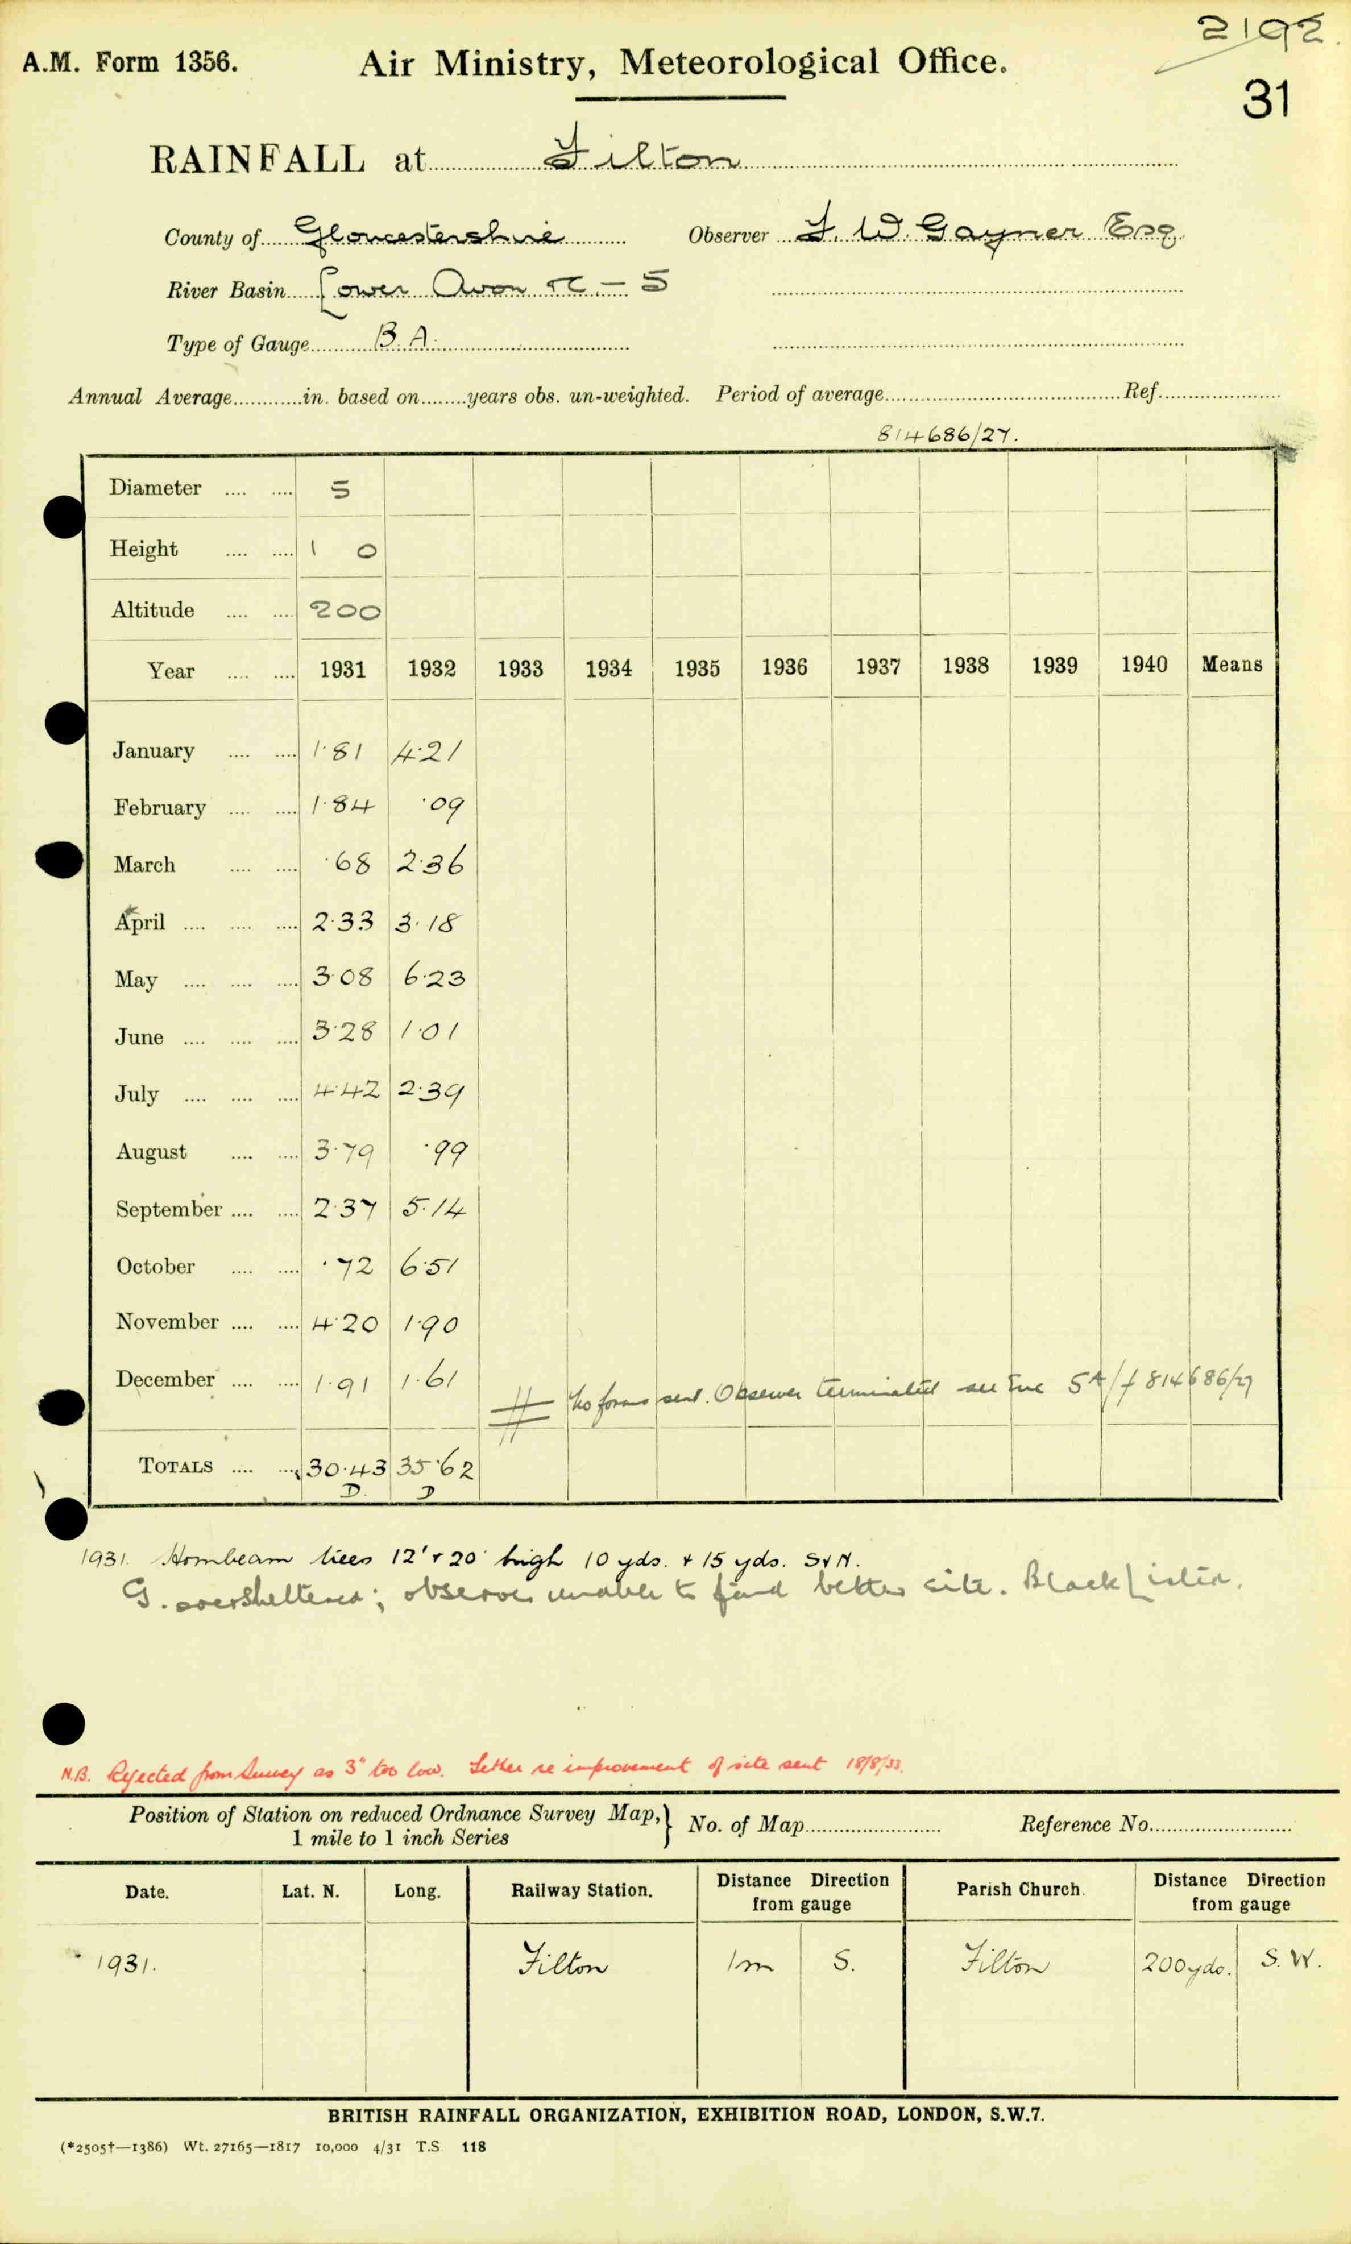 2192
A.M. Form 1356. Air Ministry, Meteorological Office.
31
RAINFALL at Filton
County of Gloucestershire Observer F. W. Gayner Esq
River Basin Lower Avon &c. – 5
Type of Gauge B.A.
Annual Average in. based on years obs. un-weighted. Period of average Ref.
814686/27.
Diameter 5
Height 1 0
Altitude 200
Year 1931 1932 1933 1934 1935 1936 1937 1938 1939 1940 Means
January 1·81 4·21
February 1·84 ·09
March ·68 2·36
April 2·33 3·18
May 3·08 6·23
June 3·28 1·01
July 4·42 2·39
August 3·79 ·99
September 2·37 5·14
October ·72 6·51
November 4·20 1·90
December 1·91 1·61
No forms sent. Observer terminated see 5A/f 814686/27
TOTALS 30·43 35·62
D. D
1931. Hornbeam trees 12' & 20' high 10 yds. & 15 yds. S & N.
G. oversheltered; observer unable to find better site. Black Listed.
N.B. Rejected from Survey as 3" too low. Letter re improvement of site sent 18/8/33.
Position of Station on reduced Ordnance Survey Map, } No. of Map Reference No.
1 mile to 1 inch Series
Date. Lat. N. Long. Railway Station. Distance Direction from gauge Parish Church. Distance Direction from gauge
1931. Filton 1m S. Filton 200yds. S.W.
BRITISH RAINFALL ORGANIZATION, EXHIBITION ROAD, LONDON, S.W.7.
(*2505†—1386) Wt. 27165—1817 10,000 4/31 T.S. 118